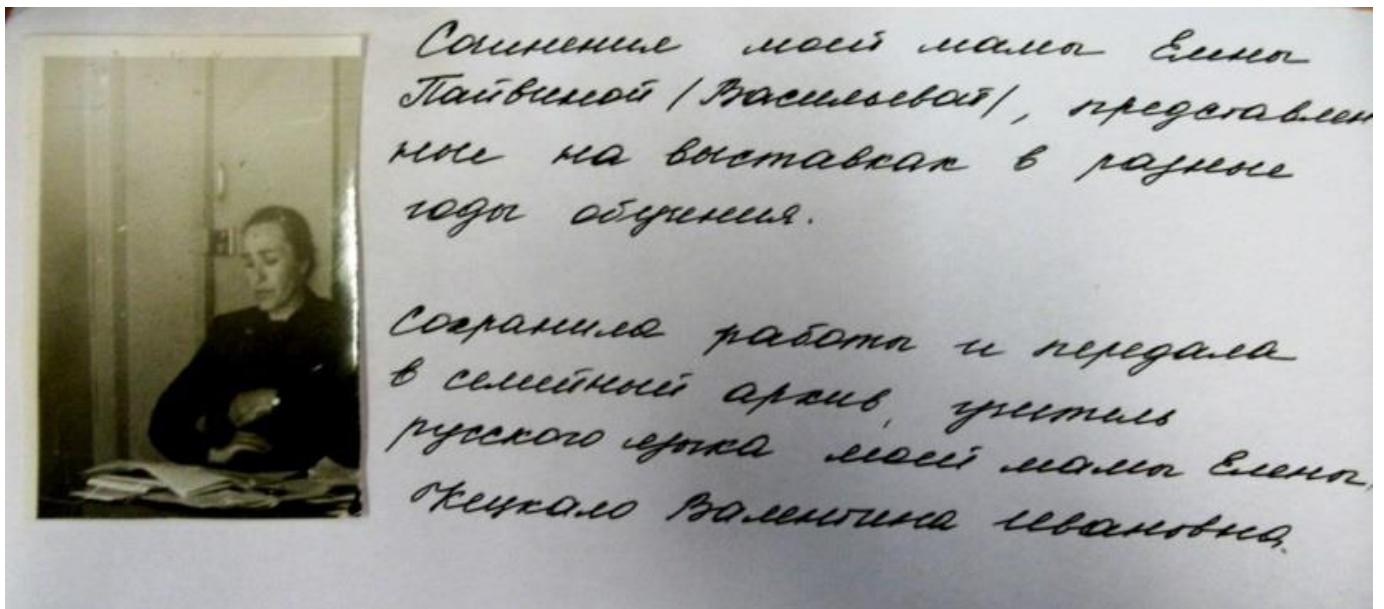 Сочинения моей мамы Елены
Пайвиной /Васильевой/, представлен
ные на выставках в разные
годы обучения.
Сохранила работы и передала
в семейный архив, учитель
русского языка моей мамы Елены,
Кецкало Валентина Ивановна.